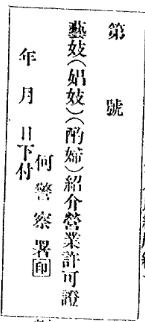 第　號
藝妓(娼妓)(酌婦)紹介營業許可證
年　月　日下付
何警察署印